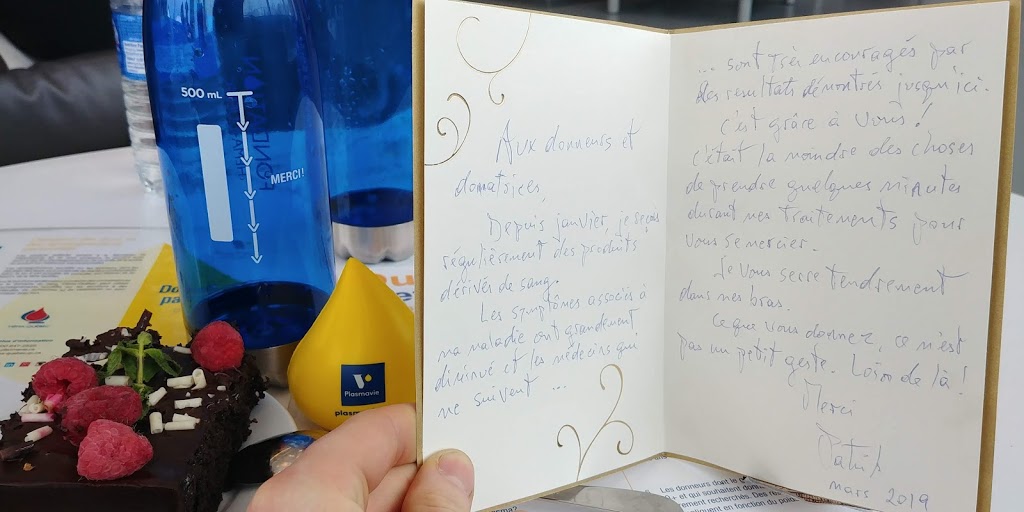 500 mL
MERCI!
Plasmavin
plasmavin
HÉMA-QUÉBEC
Aux donneurs et
donatrices,
Depuis janvier, je reçois
régulièrement des produits
dérivés de sang.
Les symptômes associés à
ma maladie ont grandement
diminué et les médecins qui
me suivent ...
... sont très encouragés par
des résultats démontrés jusqu'ici.
C'est grâce à vous!
C'était la moindre des choses
de prendre quelques minutes
durant mes traitements pour
vous remercier.
Je vous serre tendrement
dans mes bras.
Ce que vous donnez, ce n'est
pas un petit geste. Loin de là!
Merci
Patrik
mars 2019
Les donneurs dont le
+ et qui souhaitent
ement recherchés. Des
quent en fonction du